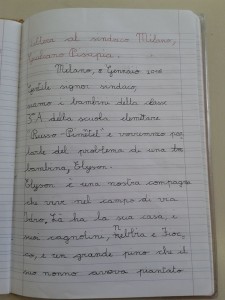 Lettera al sindaco Milano,
Giuliano Pisapia.
Milano, 8 Gennaio
Gentile signor sindaco,
siamo i bambini della classe
5ª A della scuola elementare
"Russo-Pimentel" e vorremmo par
larle del problema di una
bambina, Elyson.
Elyson è una nostra compagna
che vive nel campo di via
Idro, là ha la sua casa, i
suoi cagnolini, e Fioc
co, e un grande pino che il
suo nonno aveva piantato